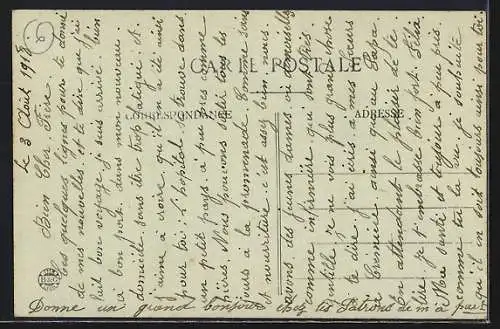 CARTE POSTALE
CORRESPONDANCE
ADRESSE
Le 3 Août 1918.
Bien Cher Frère
Ces quelques lignes pour te donné
de mes nouvelles et te dire que j'ai
fait bon voyage je suis arrivé bien
à bon port. dans mon nouveau
domicile sans être trop fatigué et
j'aime à croire qu'il en a été ainsi
pour toi. L'hôpital se trouve dans
un petit pays à peu près comme
Nous pouvons sortir tous les
jours à la promenade. Comme soins
et nourriture c'est assez bien. nous
avons des jeunes dames ou demoiselles
comme infirmière qui sont très
gentille je ne vois plus grand chose
à te dire j'ai écris à mes sœurs
ainsi qu'au Papa
En attendant le plaisir de te
lire je t'embrasse bien fort. Félix
Ma santé et toujours à peu près
comme je souhaite
en soit toujours ainsi
Donne un grand bonjour chez les Patrons de m'a part